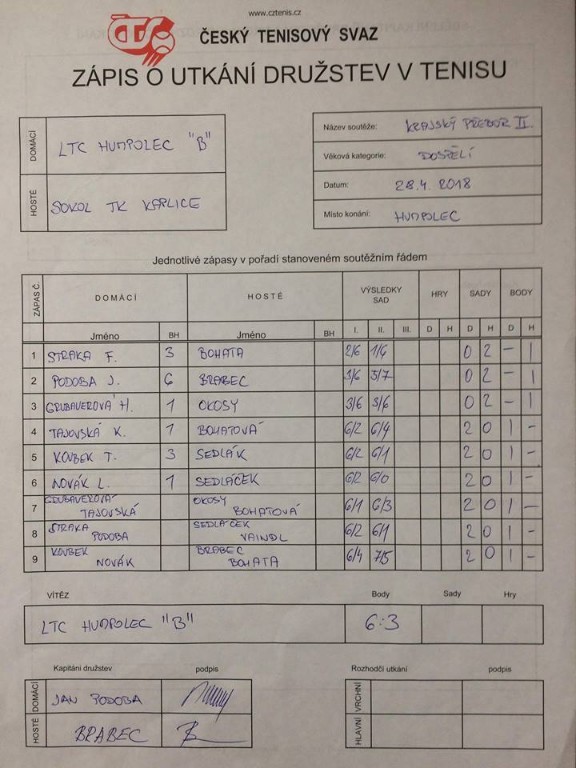 www.cztenis.cz
ČTS
ČESKÝ TENISOVÝ SVAZ
ZÁPIS O UTKÁNÍ DRUŽSTEV V TENISU
DOMÁCÍ LTC HUMPOLEC "B"
HOSTÉ SOKOL TK KAPLICE
Název soutěže: KRAJSKÝ PŘEBOR II.
Věková kategorie: DOSPĚLÍ
Datum: 28.4. 2018
Místo konání: HUMPOLEC
Jednotlivé zápasy v pořadí stanoveném soutěžním řádem
ZÁPAS Č. DOMÁCÍ HOSTÉ VÝSLEDKY SAD HRY SADY BODY
Jméno BH Jméno BH I. II. III. D H D H D H
1 STRAKA F. 3 BOHATA 2/6 1/6 0 2 - 1
2 PODOBA J. 6 BRABEC 3/6 5/7 0 2 - 1
3 GRUBAUEROVÁ H. 1 OKOSY 3/6 3/6 0 2 - 1
4 TAJOVSKÁ K. 1 BOHATOVÁ 6/2 6/4 2 0 1 -
5 KOUBEK T. 3 SEDLÁK 6/2 6/1 2 0 1 -
6 NOVÁK L. 1 SEDLÁČEK 6/2 6/0 2 0 1 -
7 GRUBAUEROVÁ TAJOVSKÁ OKOSY BOHATOVÁ 6/1 6/3 2 0 1 -
8 STRAKA PODOBA SEDLÁČEK VAINDL 6/2 6/1 2 0 1 -
9 KOUBEK NOVÁK BRABEC BOHATA 6/4 7/5 2 0 1 -
VÍTĚZ Body Sady Hry
LTC HUMPOLEC "B" 6:3
Kapitáni družstev podpis Rozhodčí utkání podpis
DOMÁCÍ JAN PODOBA VRCHNÍ
HOSTÉ BRABEC HLAVNÍ